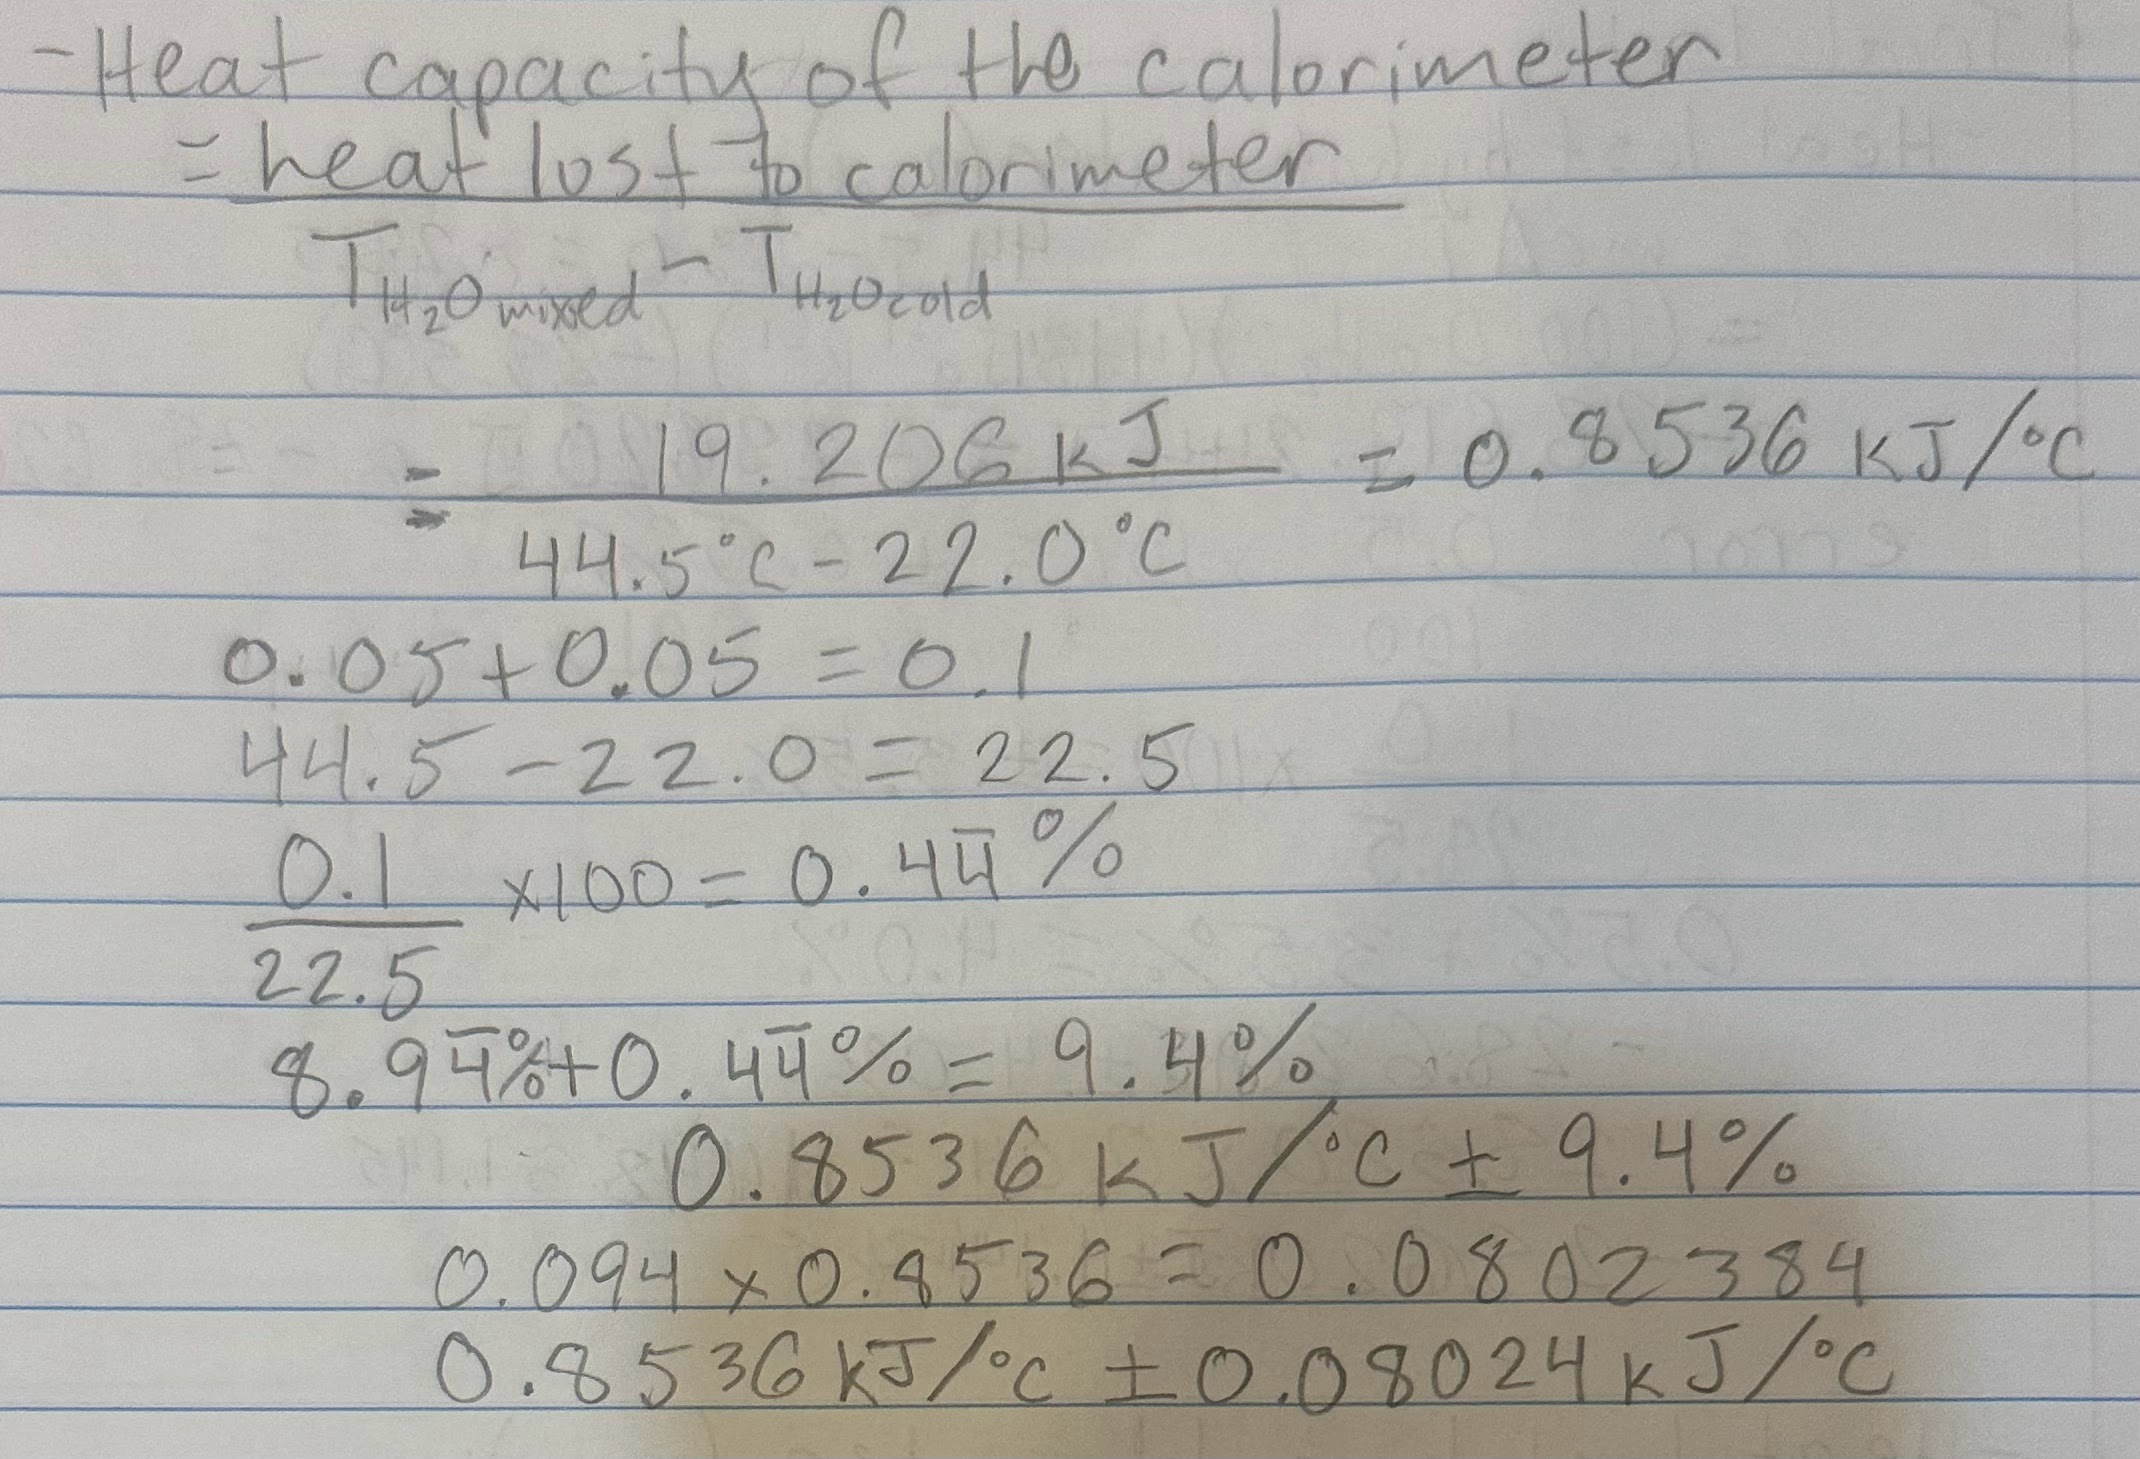 -Heat capacity of the calorimeter
= heat lost to calorimeter
T H₂O mixed - T H₂O cold
= 19.206 kJ = 0.8536 kJ/°C
44.5°C - 22.0°C
0.05 + 0.05 = 0.1
44.5 - 22.0 = 22.5
0.1 x100 = 0.44̅%
22.5
8.94̅% + 0.44̅% = 9.4%
0.8536 kJ/°C ± 9.4%
0.094 x 0.8536 = 0.0802384
0.8536 kJ/°C ± 0.08024 kJ/°C